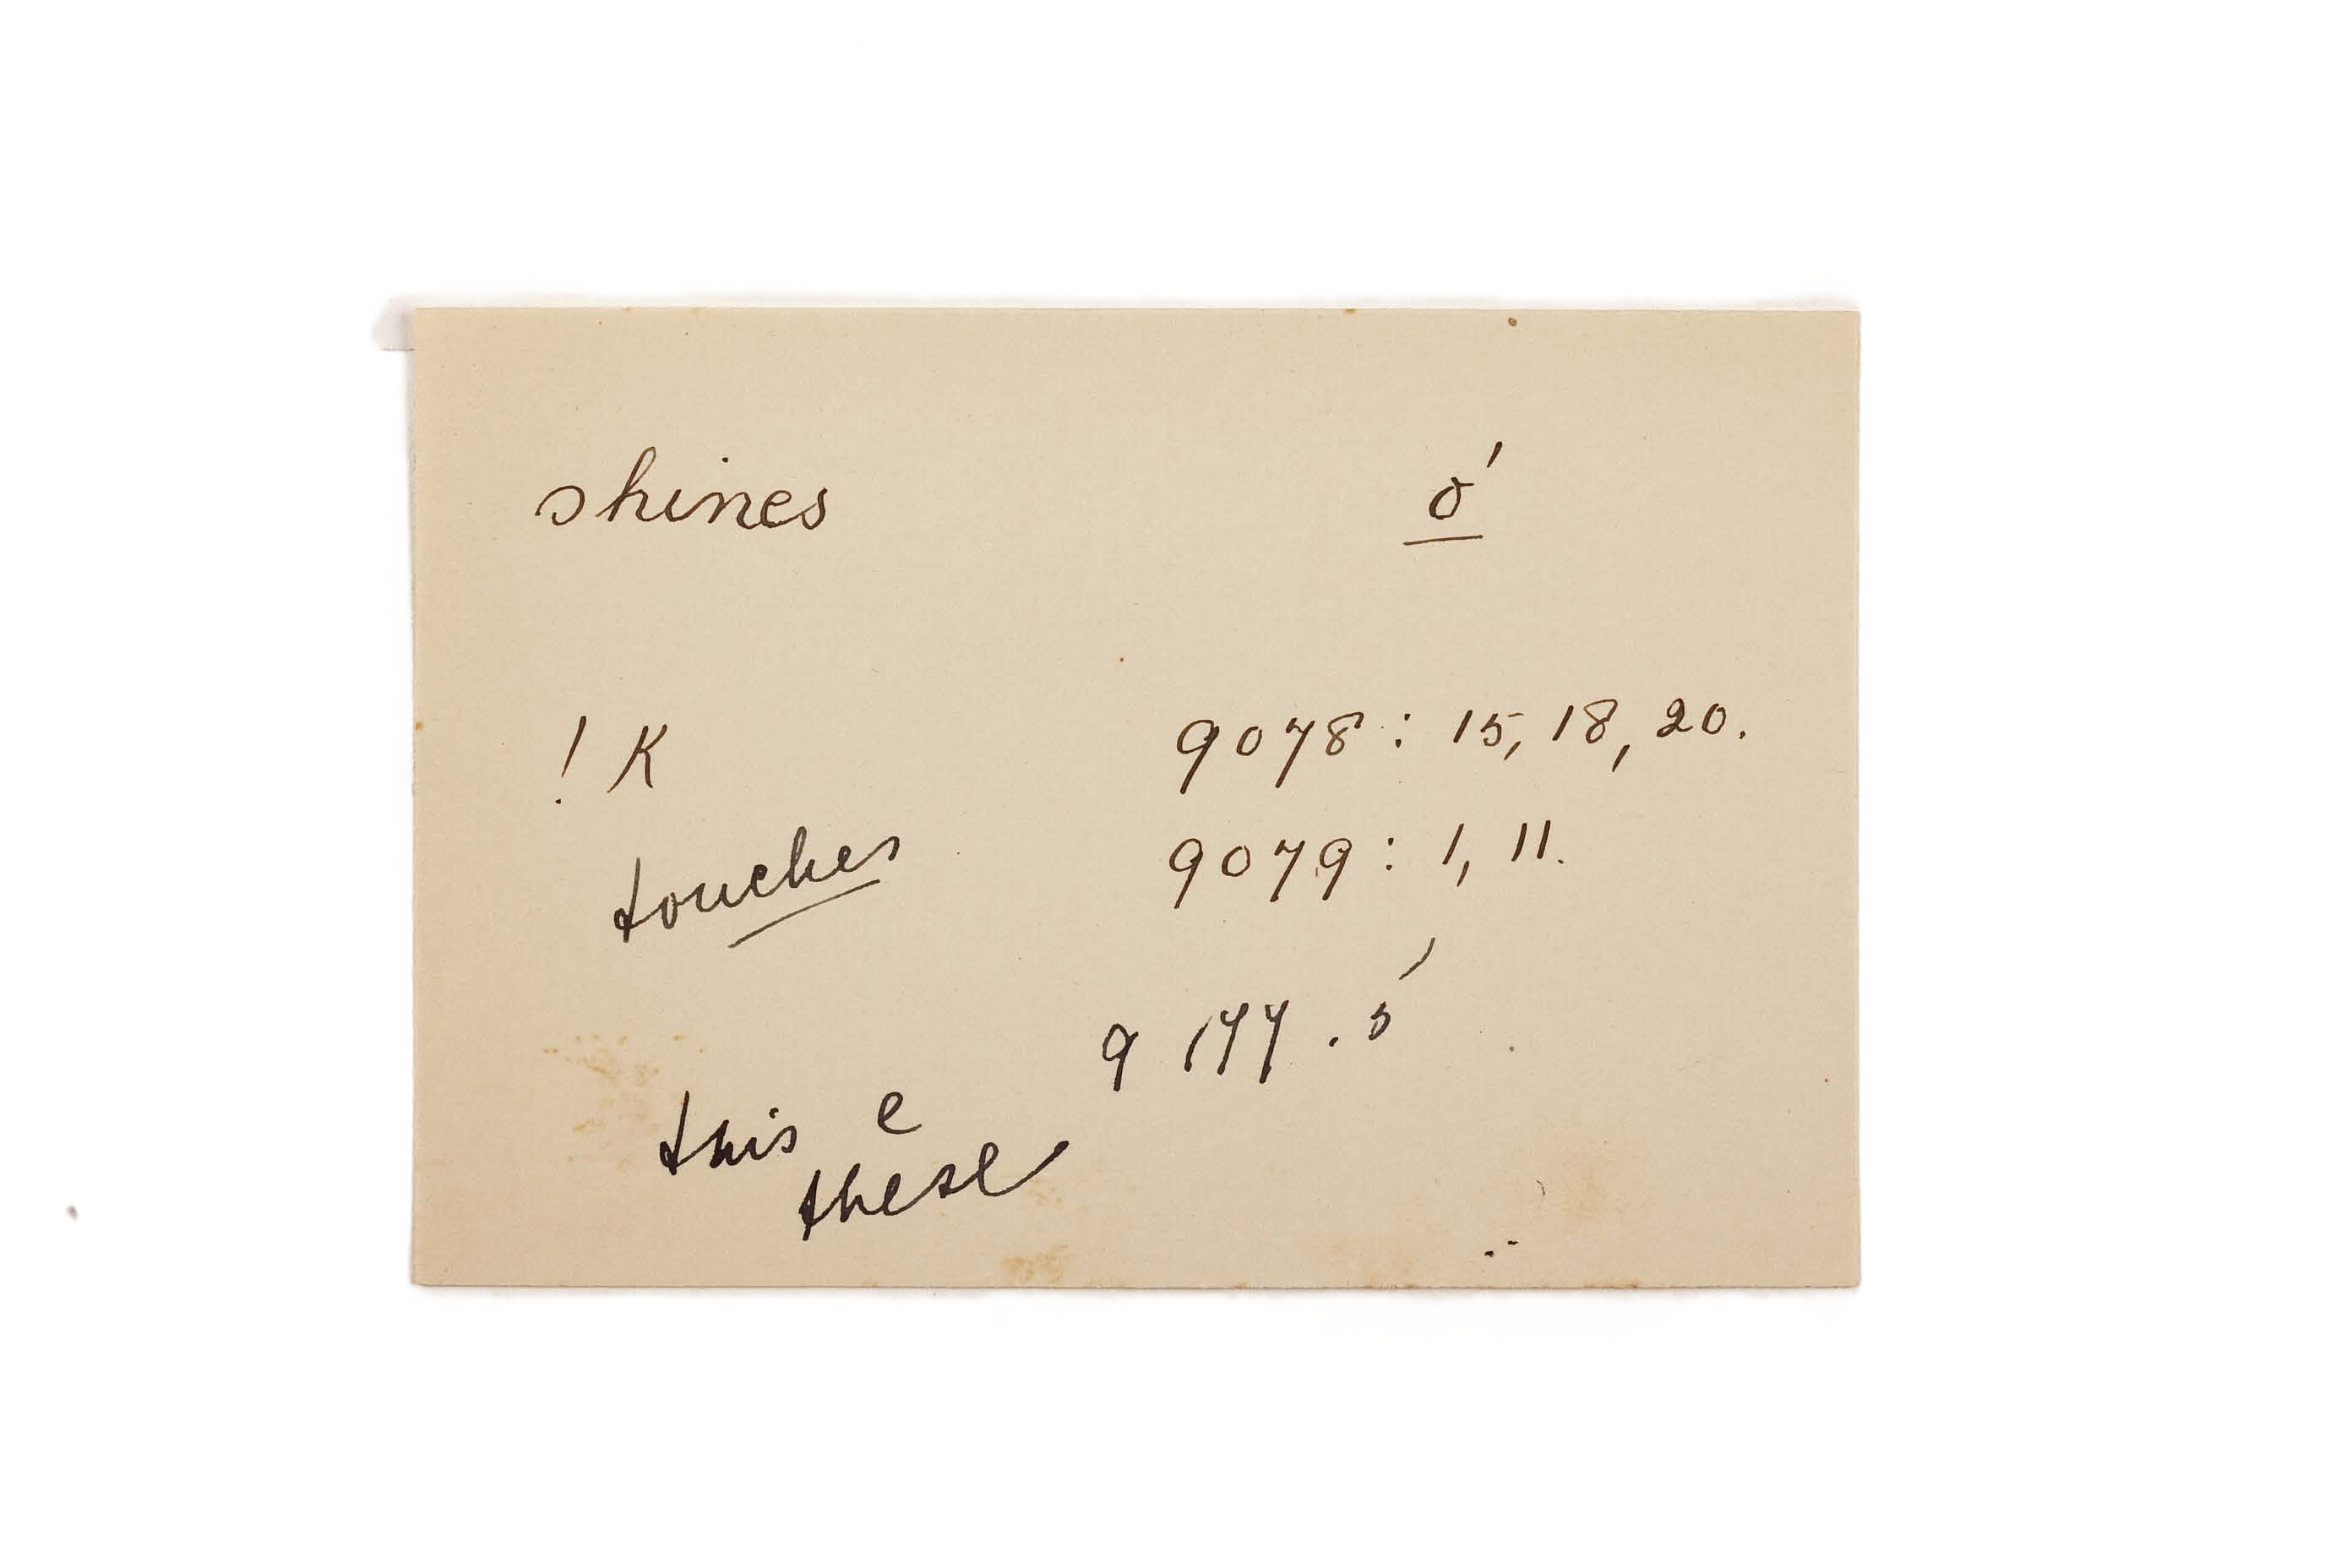 shines ó
! K 9078 : 15, 18, 20.
touches 9079 : 1, 11.
9 177 . 5'
this e
these